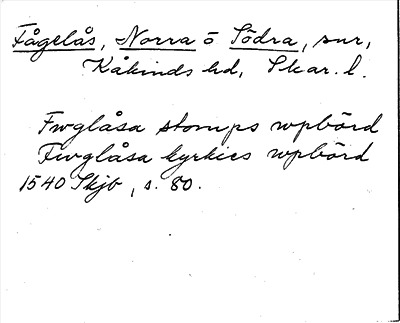 Fågelås, Norra o Södra, snr,
Kåkinds hd, Skar. l.
Fwglåsa stomps wpbörd
Fwglåsa kyrkies wpbörd
1540 Skjb, s. 80.